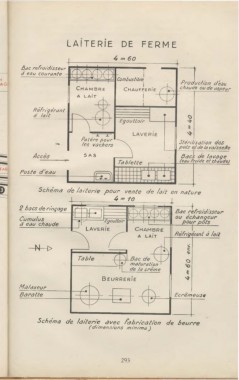 LAÏTERIE DE FERME
4=60
Bac refroidisseur
à eau courante
CHAMBRE
A LAIT
Combustible
CHAUFFERIE
Production d'eau
chaude ou de vapeur
Réfrigérant
à lait
Egouttoir
LAVERIE
4=40
Patère pour
les vachers
Stérilisation des
pots et de la vaisselle
Accès
SAS
Tablette
Bacs de lavage
Poste d'eau
Schéma de laiterie pour vente de lait en nature
4=10
2 bacs de rinçage
Cumulus
à eau chaude
Egouttoir
Bac refroidisseur
ou échangeur
pour pots
LAVERIE
CHAMBRE
A LAIT
Réfrigérant à lait
N
Table
Bac de
maturation
de la crème
BEURRERIE
4=60
Malaxeur
Baratte
Ecrémeuse
Schéma de laiterie avec fabrication de beurre
(dimensions minima)
293